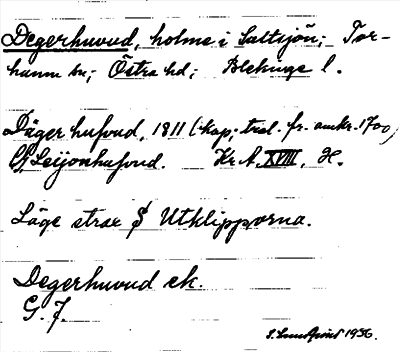 Degerhuvud, holme i Saltsjön; Tor-
hamn sn; Östra hd; Blekinge l.
Däger hufvud, 1811 (kop; trol. fr. omkr. 1700)
G. Leijonhufvud. Kr. A. XVIII, H.
Läge strax S Utklipporna.
Degerhuvud ek.
G. J.
1936.